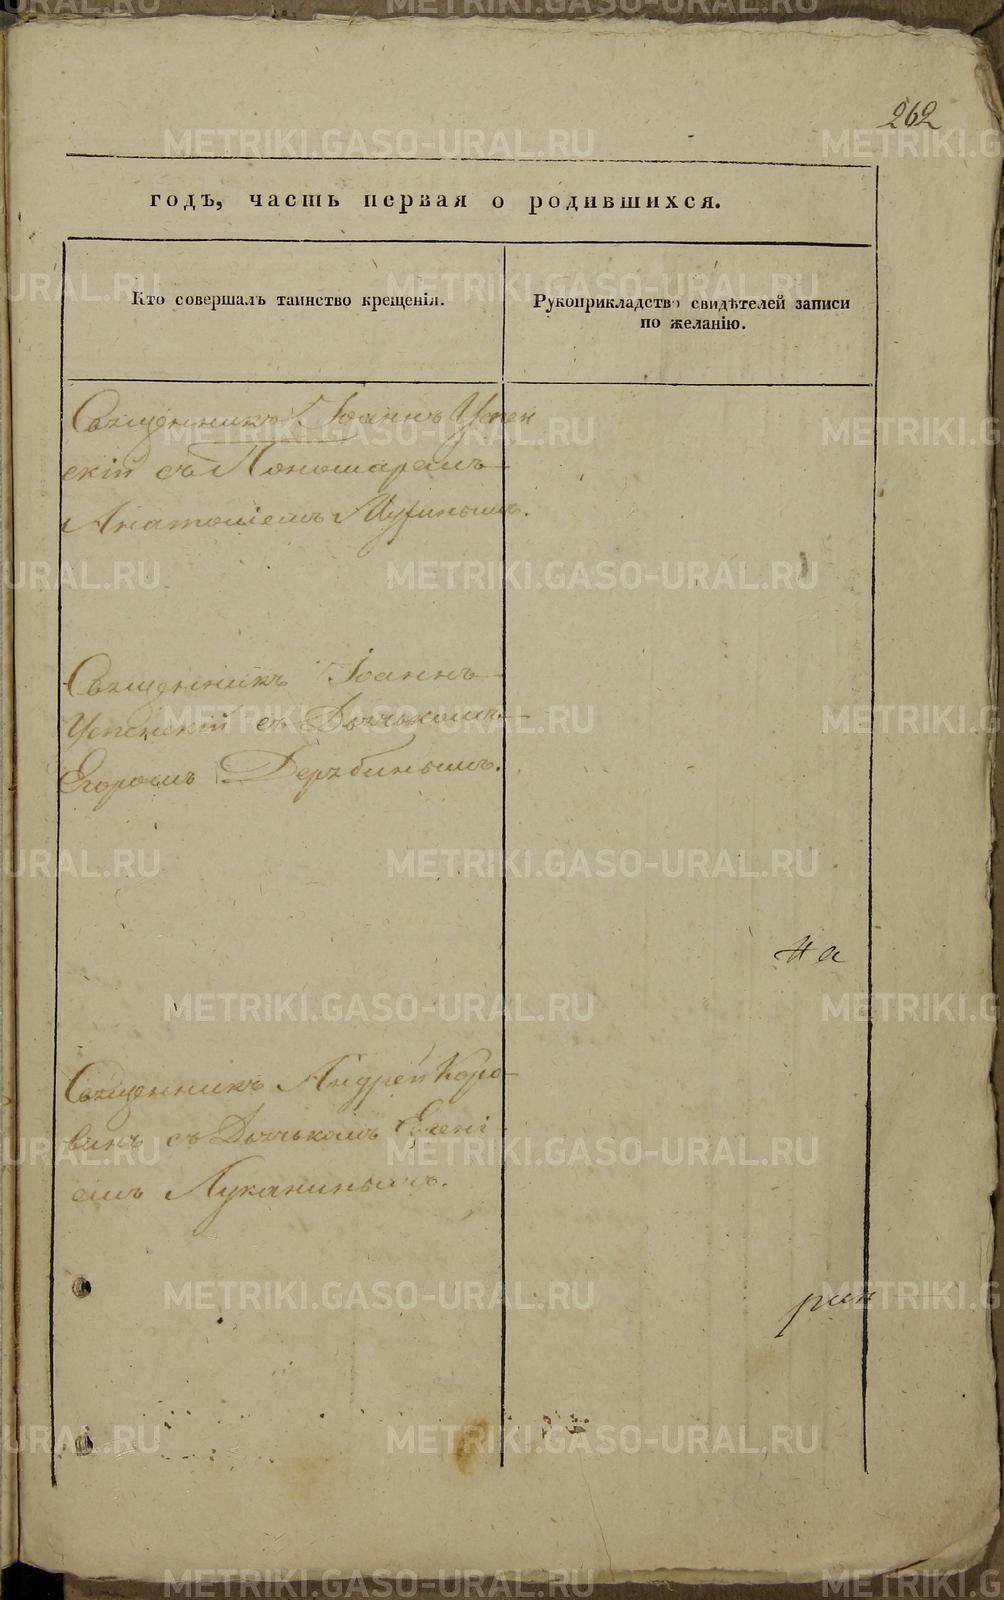 262
годъ, часть первая о родившихся.
Кто совершалъ таинство крещенія.
Рукоприкладство свидѣтелей записи
по желанію.
Священникъ Іоаннъ Успен
скій съ Пономаремъ
Анатоліемъ
Священникъ Іоаннъ
Успенскій съ Дьячькомъ
Егоромъ Дерябинымъ.
на
Священникъ Андрей Коро
винъ съ Дьячькомъ Евгені
емъ Луканинымъ.
METRIKI.GASO-URAL.RU